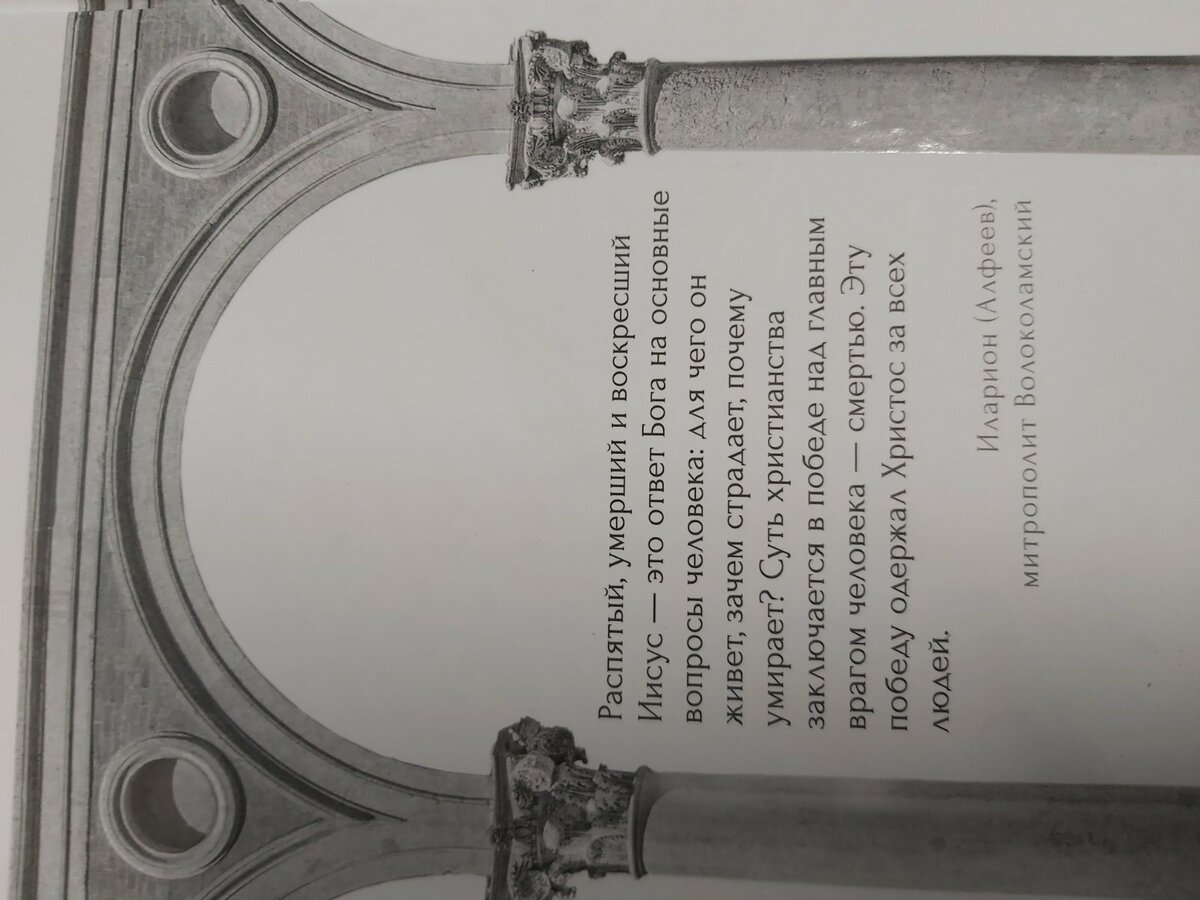 Распятый, умерший и воскресший
Иисус — это ответ Бога на основные
вопросы человека: для чего он
живет, зачем страдает, почему
умирает? Суть христианства
заключается в победе над главным
врагом человека — смертью. Эту
победу одержал Христос за всех
людей.
Иларион (Алфеев),
митрополит Волоколамский